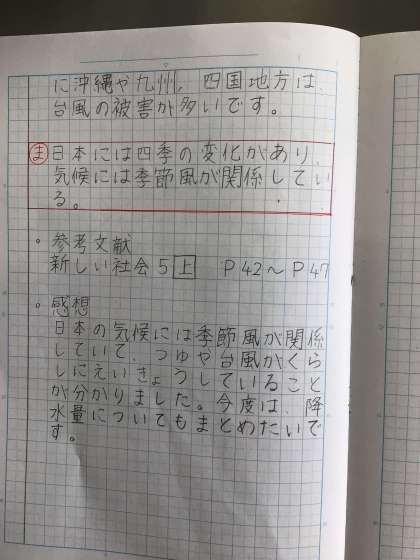 に沖縄や九州、四国地方は、
台風の被害が多いです。
ま 日本には四季の変化があり、
気候には季節風が関係してい
る。
。参考文献
新しい社会5上 P42〜P47
。感想
日本の気候には季節風が関係
していて、つゆや台風がくら
しにえいきょうしていること
が分かりました。今度は、降
水量についてもまとめたいで
す。